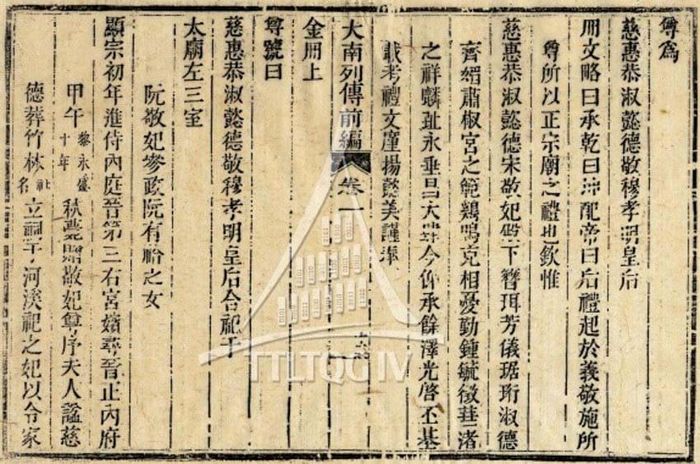 尊爲
慈惠恭淑懿德敬穆孝明皇后
冊文略曰承乾曰坤配帝曰后禮起於義敬施所
尊所以正宗廟之禮也欽惟
慈惠恭淑懿德宋敬妃殿下簪珥芳儀琚珩淑德
齊肅椒宮之範鷄鳴克相憂勤鍾毓徵渚
之祥麟趾永垂昌大肆今仰承餘澤光啓丕基
載考禮文廑揚懿美謹奉
大南列傳前編 卷一
金冊上
尊號曰
慈惠恭淑懿德敬穆孝明皇后合祀于
太廟左三室
阮敬妃參政阮有之女
顯宗初年進侍內庭晉第二右宮嬪尋晉正內府
甲午黎永盛十年秋薨贈敬妃尊序夫人謚慈
德葬竹林社名立祠于河溪祀之妃以令家
TTLTQG IV